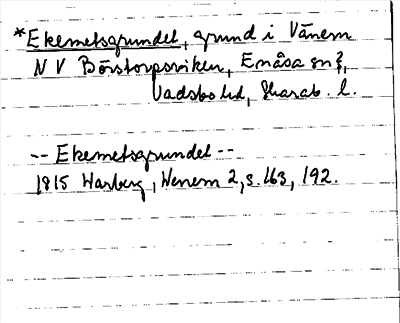 *Ekemetsgrundet, grund i Vänern
N V Börstorpsviken, Enåsa sn?,
Vadsbo hd, Skarab. l.
-- Ekemetsgrundet --
1815 Warberg, Wenern 2, s. 163, 192.